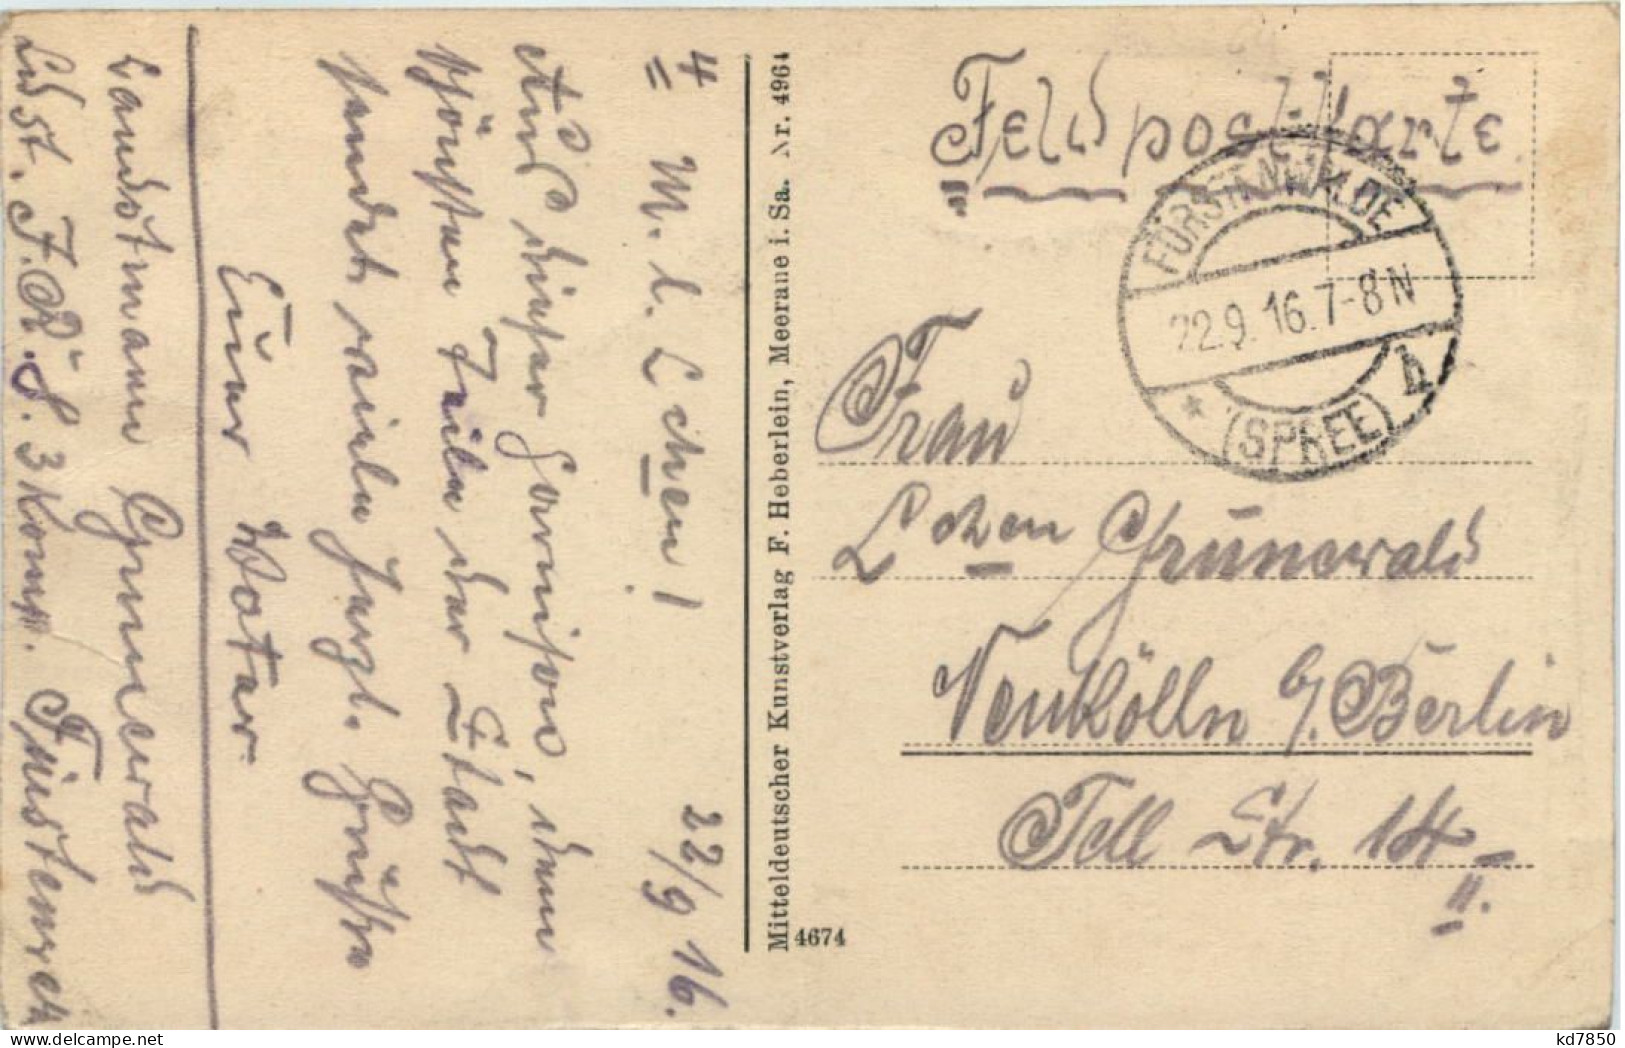 Feldpost-Karte
FÜRSTENWALDE
22.9.16.7-8N
(SPREE)
b
Frau
Lchen Grunewald
Neukölln b/Berlin
Tell Str. 14
II.
Mitteldeutscher Kunstverlag F. Heberlein, Meerane i. Sa. Nr. 4964
4674
4 22/9 16.
M. l. Lchen!
Aus dieser Garnison, dem
schönsten Teile der Stadt
sendet viele herzl. Grüße
Euer Vater.
Landstmann Grunewald
Ldst. 3 Komp.
kd7850